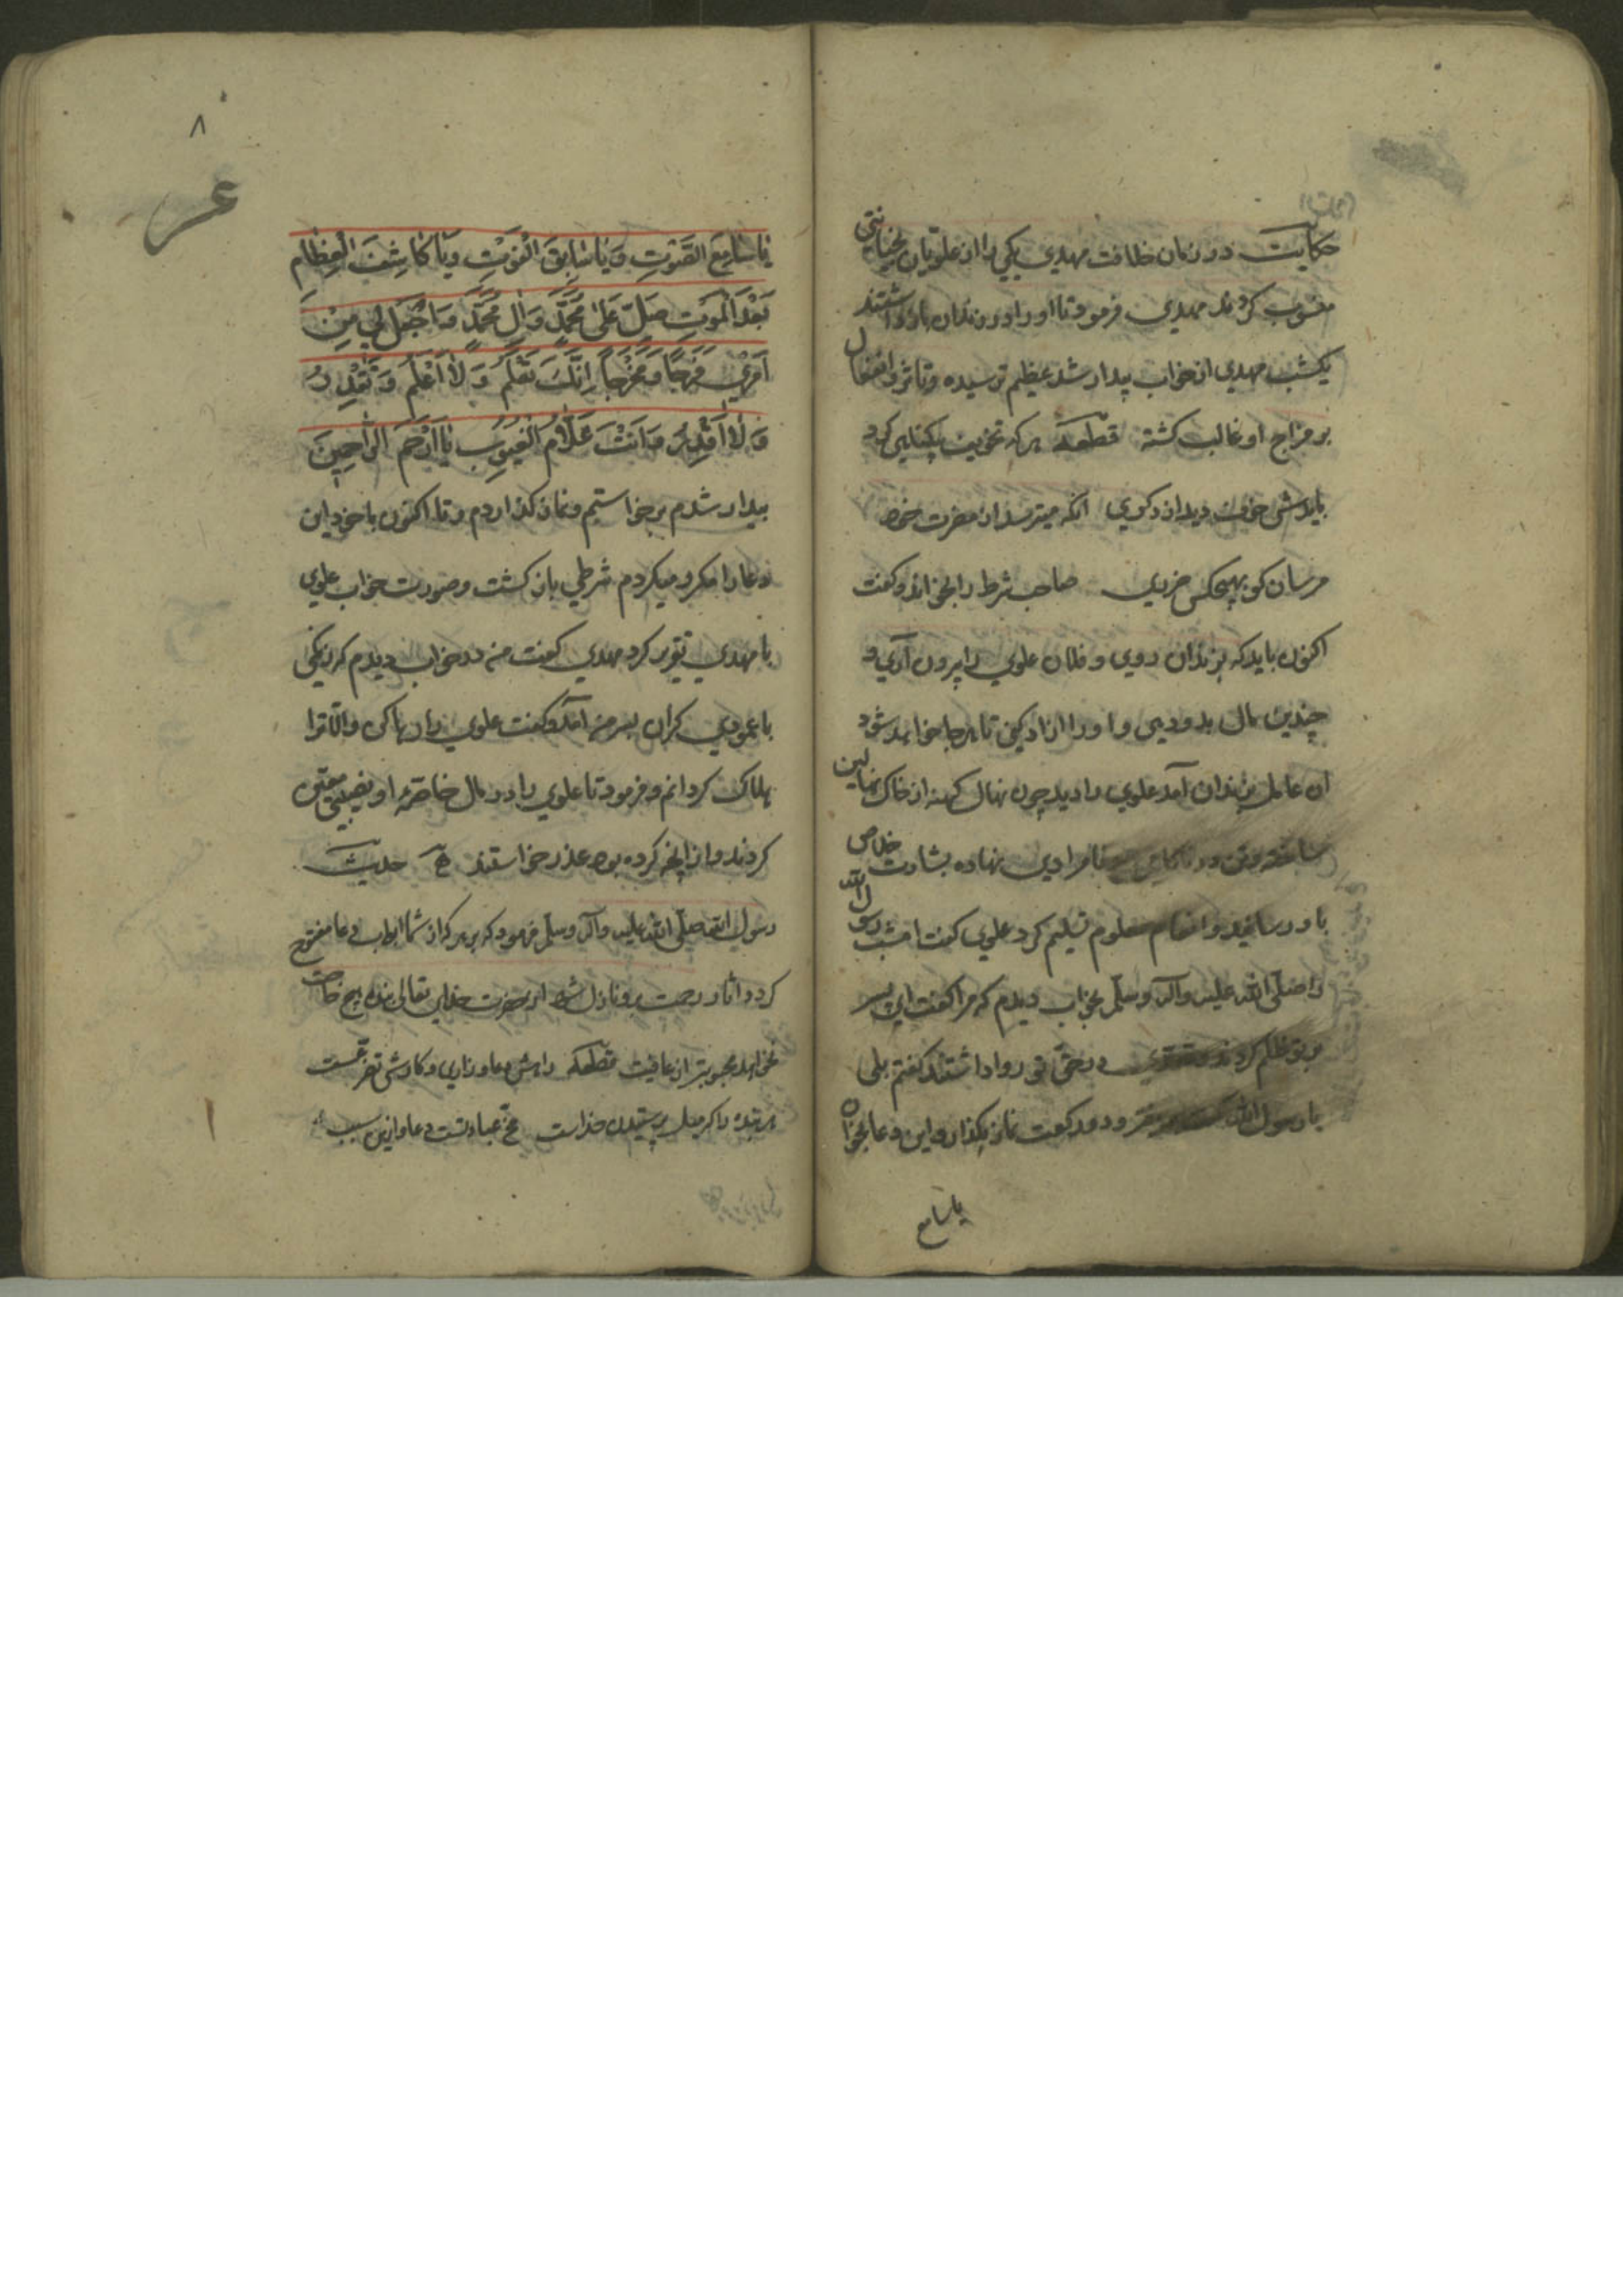 حکایت در زمان خلافت مهدی یکی را از علویان بخیانتی
منسوب کردند مهدی فرمود تا او را در زندان بازداشتند
یکشب مهدی از خواب بیدار شد عظیم ترسیده و تاثر و انفعال
بر مزاج او غالب کشته قطعه هر که تخویف بیکناهی کرد
بایدش خوف دید از دکری انکه میترسد از مضرت خود
مرسان کو بهیچکس ضرری صاحب شرط را بخواند و کفت
اکنون باید که بزندان روی و فلان علوی را بیرون آری و
چندین مال بدو دهی و او را ازاد کنی تا هرجا خواهد شود
ان عامل بزندان آمد علوی را دید چون نهال کهنه از خاک نهالین
ساخته و تن در ناکامی و نامرادی نهاده بشارت خلاص
باو رسانید و انعام معلوم تسلیم کرد علوی کفت امشب رسول الله
را صلّی الله علیه وآله وسلّم بخواب دیدم که مرا کفت ای پسر
بر تو ظلم کردند و در حق تو روا داشتند کفتم بلی
یا رسول الله فرمود دو رکعت نماز بکذار و این دعا بخوان
یا سامع
۸
یٰا سٰامِعَ الصَّوْتِ وَیٰا سٰابِقَ الْفَوْتِ وَیٰا کٰاشِفَ الْعِظٰامِ
بَعْدَ الْمَوْتِ صَلِّ عَلیٰ مُحَمَّدٍ وَ اٰلِ مُحَمَّدٍ وَ اجْعَلْ لِی مِنْ
اَمْرِی فَرَجًا وَ مَخْرَجًا اِنَّکَ تَعْلَمُ وَ لٰا اَعْلَمُ وَ تَقْدِرُ
وَ لٰا اَقْدِرُ وَ اَنْتَ عَلّٰامُ الْغُیُوبِ یٰا اَرْحَمَ الرّٰاحِمِینَ
بیدار شدم برخواستم و نماز کذاردم و تا اکنون با خود این
دعا را مکرر میکردم شرطی باز کشت و صورت خواب علوی
با مهدی تقریر کرد مهدی کفت من در خواب دیدم که زنکی
با عمودی کران بسر من آمد و کفت علوی را رها کن والّا ترا
هلاک کردانم و فرمود تا علوی را در مال خاصّه او نصیبی معیّن
کردند و از آنچه کرده بود عذر خواستند حدیث
رسول الله صلّی الله علیه وآله وسلّم فرمود که بر هر که از شما ابواب دعا مفتوح
کردد اثار رحمت برو نازل شود از حضرت خدای تعالی بنده هیچ حاجت
نخواهد محبوبتر از عافیت قطعه راهش دعا و زاری و کارش تضرعست
هر بنده را که میل پرستیدن خداست مخ عبادتست دعا و ازین سبب